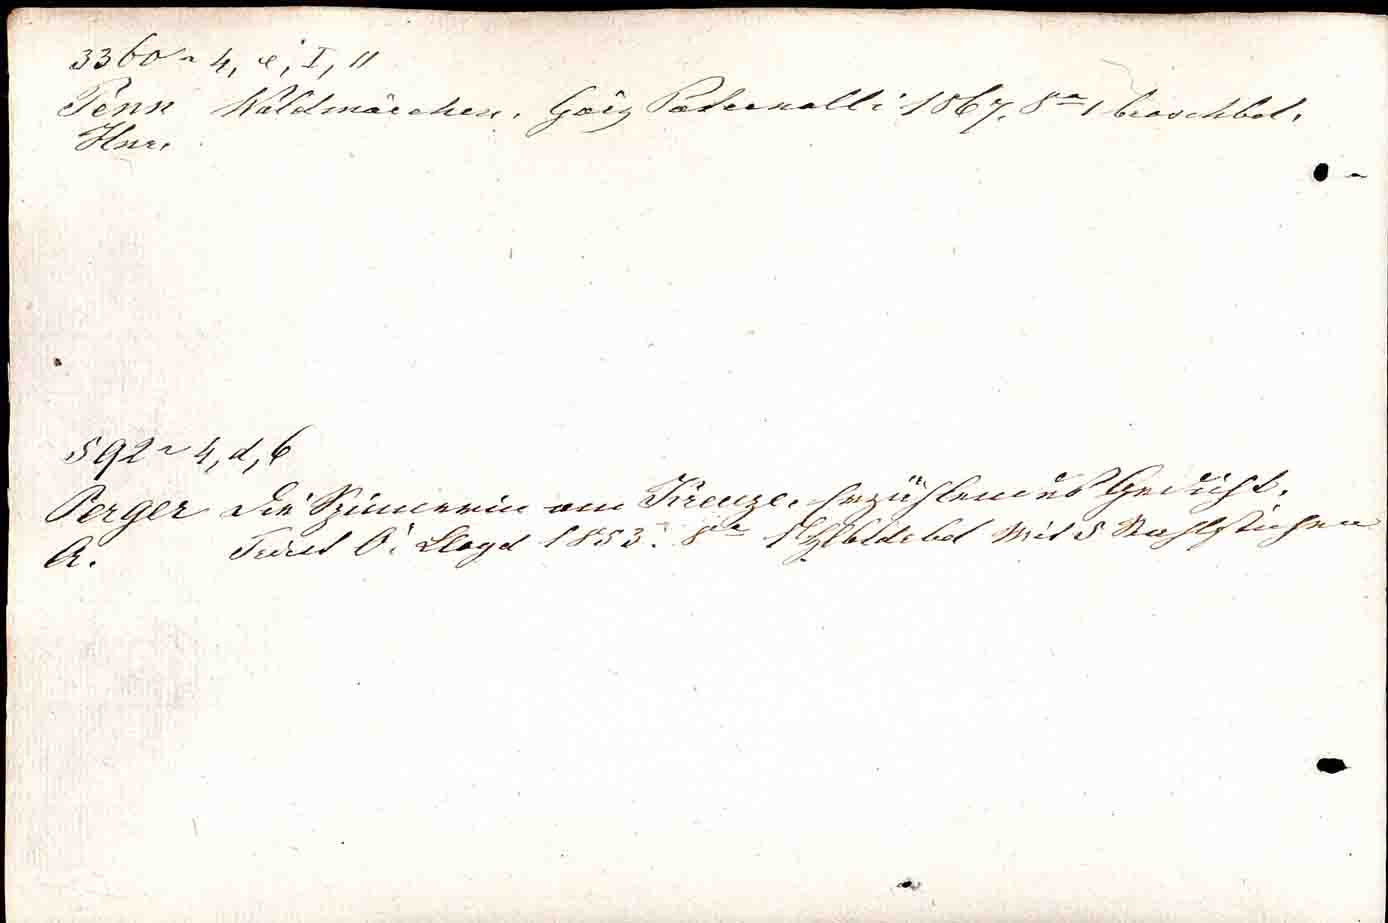 3360 ~ 4, e, I, 11
Penn Waldmärchen. Görz Paternolli 1867. 8° 1 broschbd.
Hnr.
592 ~ 4, d, 6
Perger Die Spinnerin am Kreuze. Erzählendes Gedicht.
A. Triest Ö. Lloyd 1853. 8° 1 Hlbldrbd Mit 5 Stahlstichen